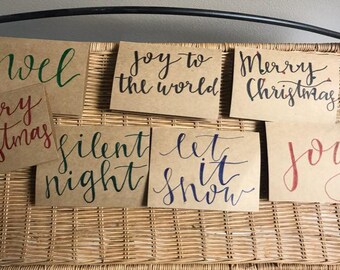 wel
Joy to
the world
Merry
Christmas
rry
istmas
silent
night
let
it
snow
joy